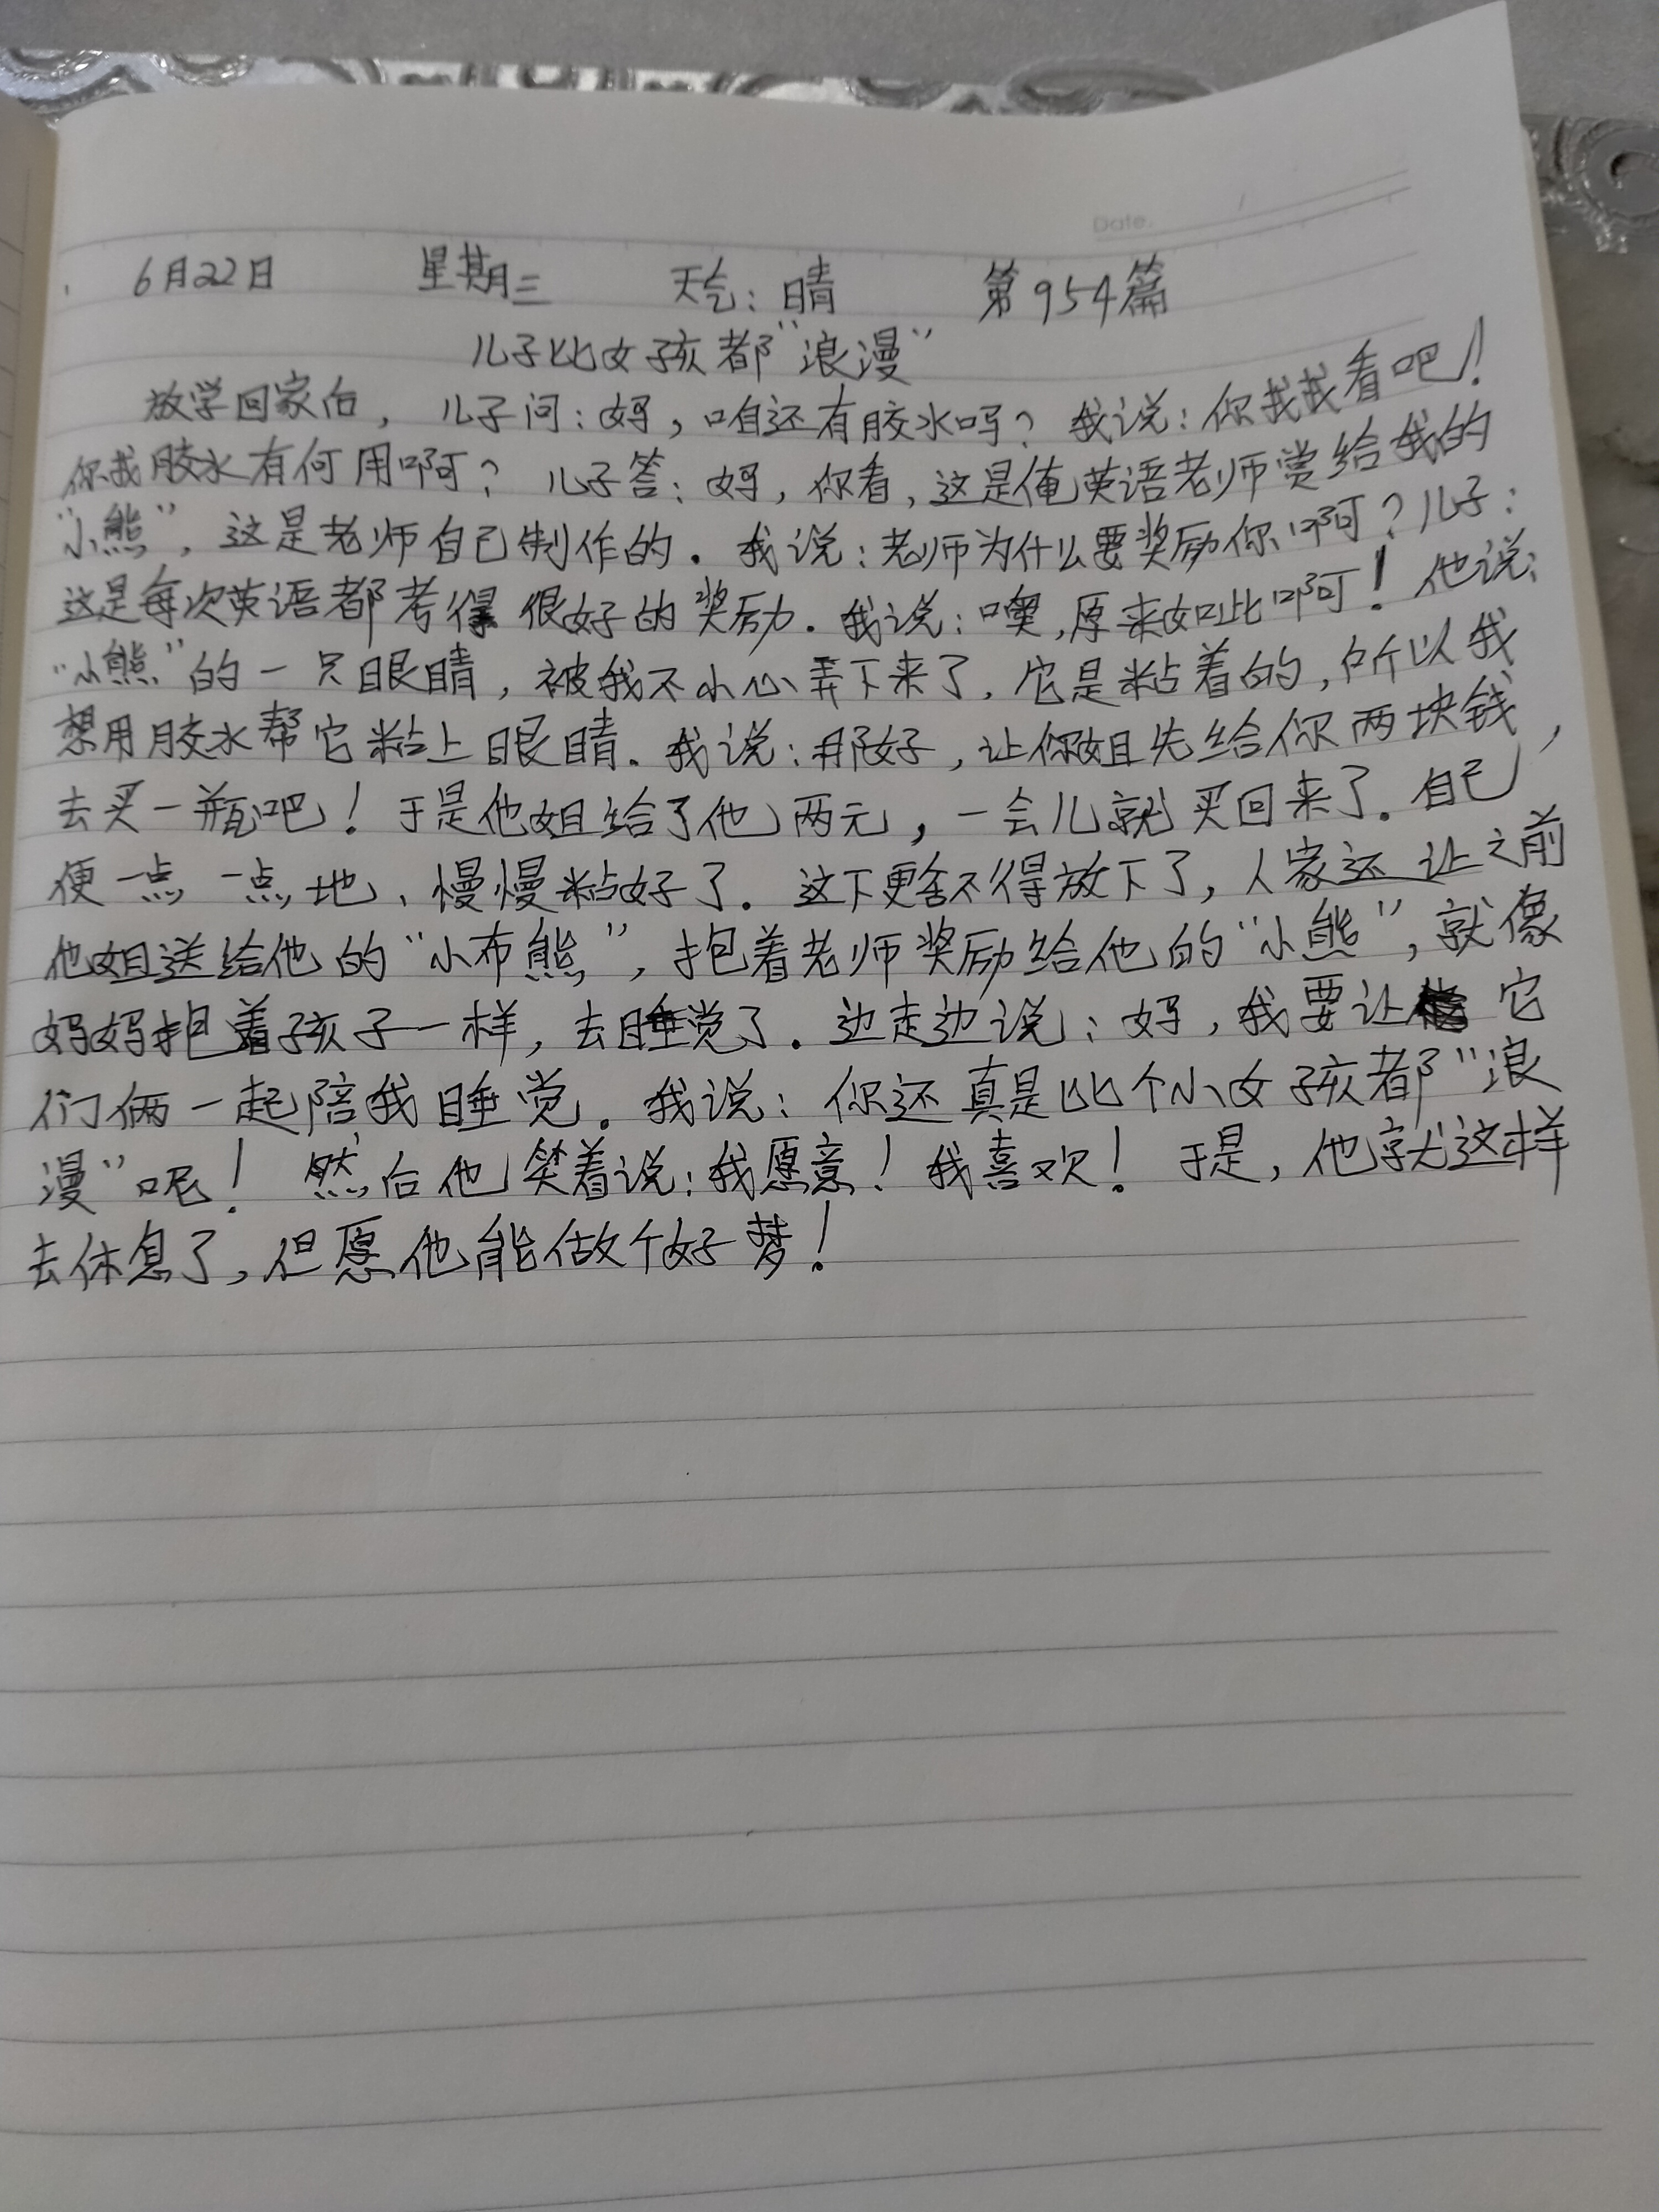 Date.
6月22日 星期三 天气：晴 第954篇
儿子比女孩都“浪漫”
放学回家后，儿子问：妈，咱还有胶水吗？我说：你找找看吧！
你找胶水有何用啊？儿子答：妈，你看，这是俺英语老师赏给我的
“小熊”，这是老师自己制作的。我说：老师为什么要奖励你啊？儿子：
这是每次英语都考得很好的奖励。我说：噢，原来如此啊！他说：
“小熊”的一只眼睛，被我不小心弄下来了，它是粘着的，所以我
想用胶水帮它粘上眼睛。我说：那好，让你姐先给你两块钱，
去买一瓶吧！于是他姐给了他两元，一会儿就买回来了。自己
便一点一点地、慢慢粘好了。这下更舍不得放下了，人家还让之前
他姐送给他的“小布熊”，抱着老师奖励给他的“小熊”，就像
妈妈抱着孩子一样，去睡觉了。边走边说：妈，我要让它
们俩一起陪我睡觉。我说：你还真是比个小女孩都“浪
漫”呢！然后他笑着说：我愿意！我喜欢！于是，他就这样
去休息了，但愿他能做个好梦！